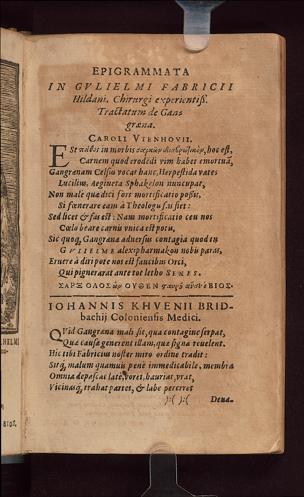 EPIGRAMMATA
IN GVLIELMI FABRICII
Hildani, Chirurgi experientiss.
Tractatum de Gan-
græna.
CAROLI VTENHOVII.
ESt πάθος in morbis σαρκῶν hoc est,
Carnem quod erodédi vim habet emortuā,
Gangrænam Celsus vocat hanc, Herpestida vates
Lucilius, Aegineta Sphakelon nuncupat,
Non malè quæ dici fors mortificatio possit,
Si fœnerare eam à Theologu sas siet:
Sed licet & fas est: Nam mortificatio ceu nos
Cælo beare carnis vnica est potu,
Sic quoq, Gangræna adversus contagia quod in
GVLIELME alexipharmakon nobis paras,
Eruere à diri potè nos est faucibus Orci,
Qui pignerarat ante tot letho SENES.
ΣΑΡΞ ΟΛΟΣ ΟΥΘΕΝ ΒΙΟΣ.
IOHANNIS KHVENII BRID-
bachij Coloniensis Medici.
QVid Gangræna mali sit, qua contagine serpat,
Quæ causa generent illam, quæ signa revelent.
Hic tibi Fabricius noster miro ordine tradit:
Sitq, malum quamuis penè immedicabile, membra
Omnia depascat latè, voret, hauriat, vrat,
Vicinasq, trahat partes, & labe peterret
):( ):( Deua-